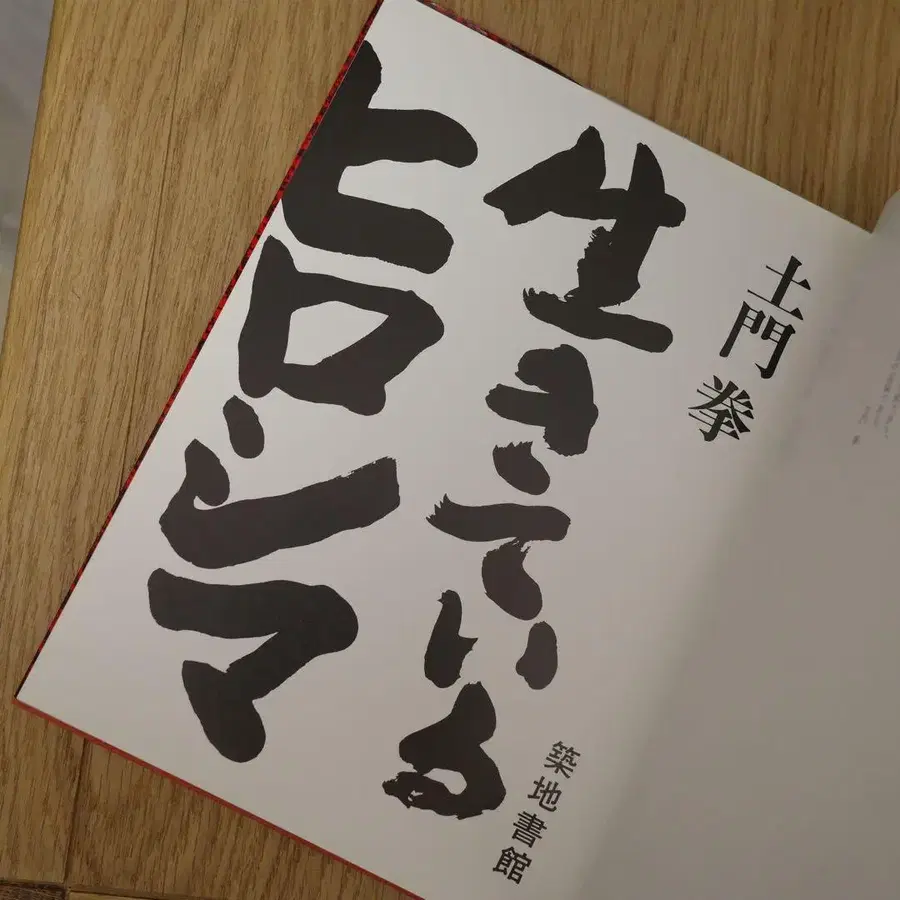 土門拳
生きている
ヒロシマ
築地書館